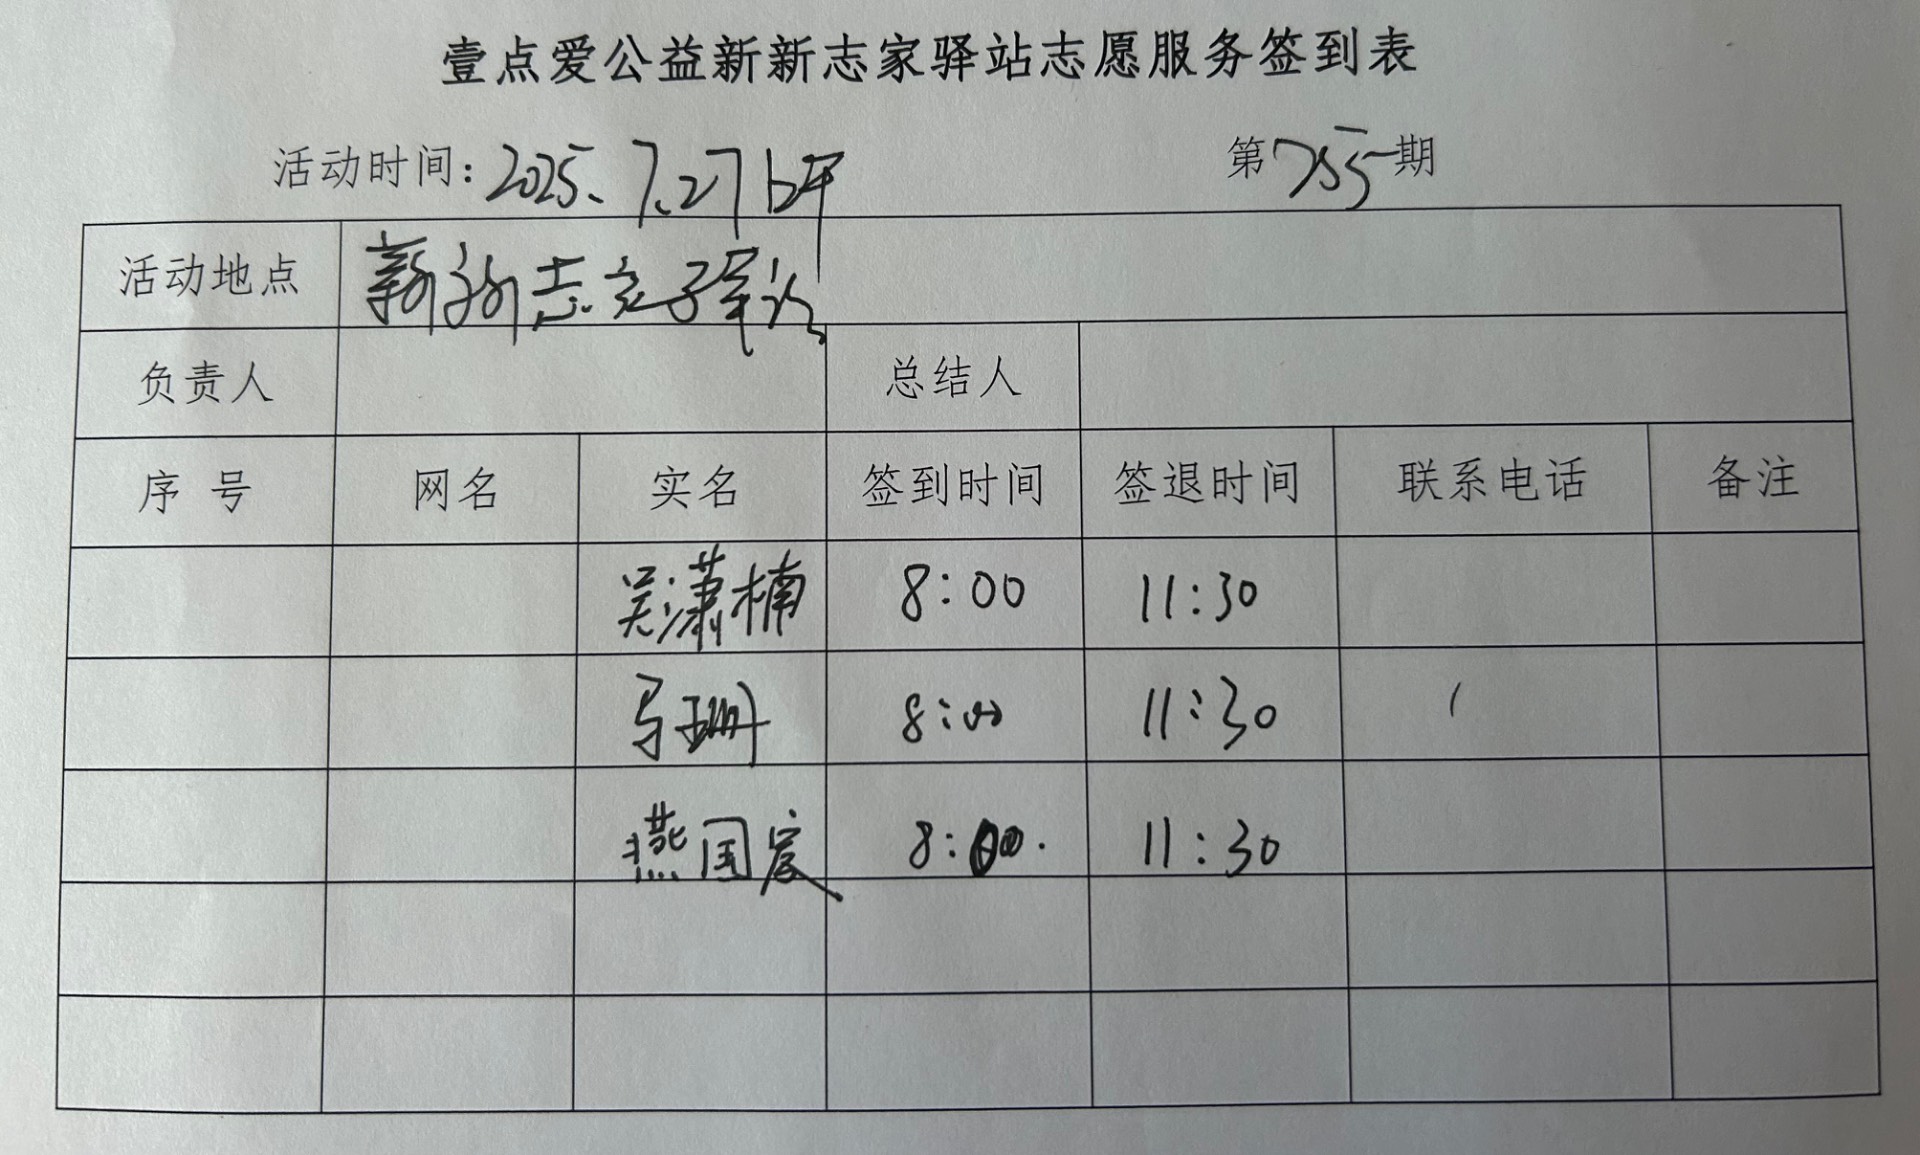 壹点爱公益新新志家驿站志愿服务签到表
活动时间: 2025.7.27上午 第755期
活动地点 新新志家驿站
负责人 总结人
序号 网名 实名 签到时间 签退时间 联系电话 备注
吴潇楠 8:00 11:30
马珊 8:00 11:30
燕国 8:00. 11:30